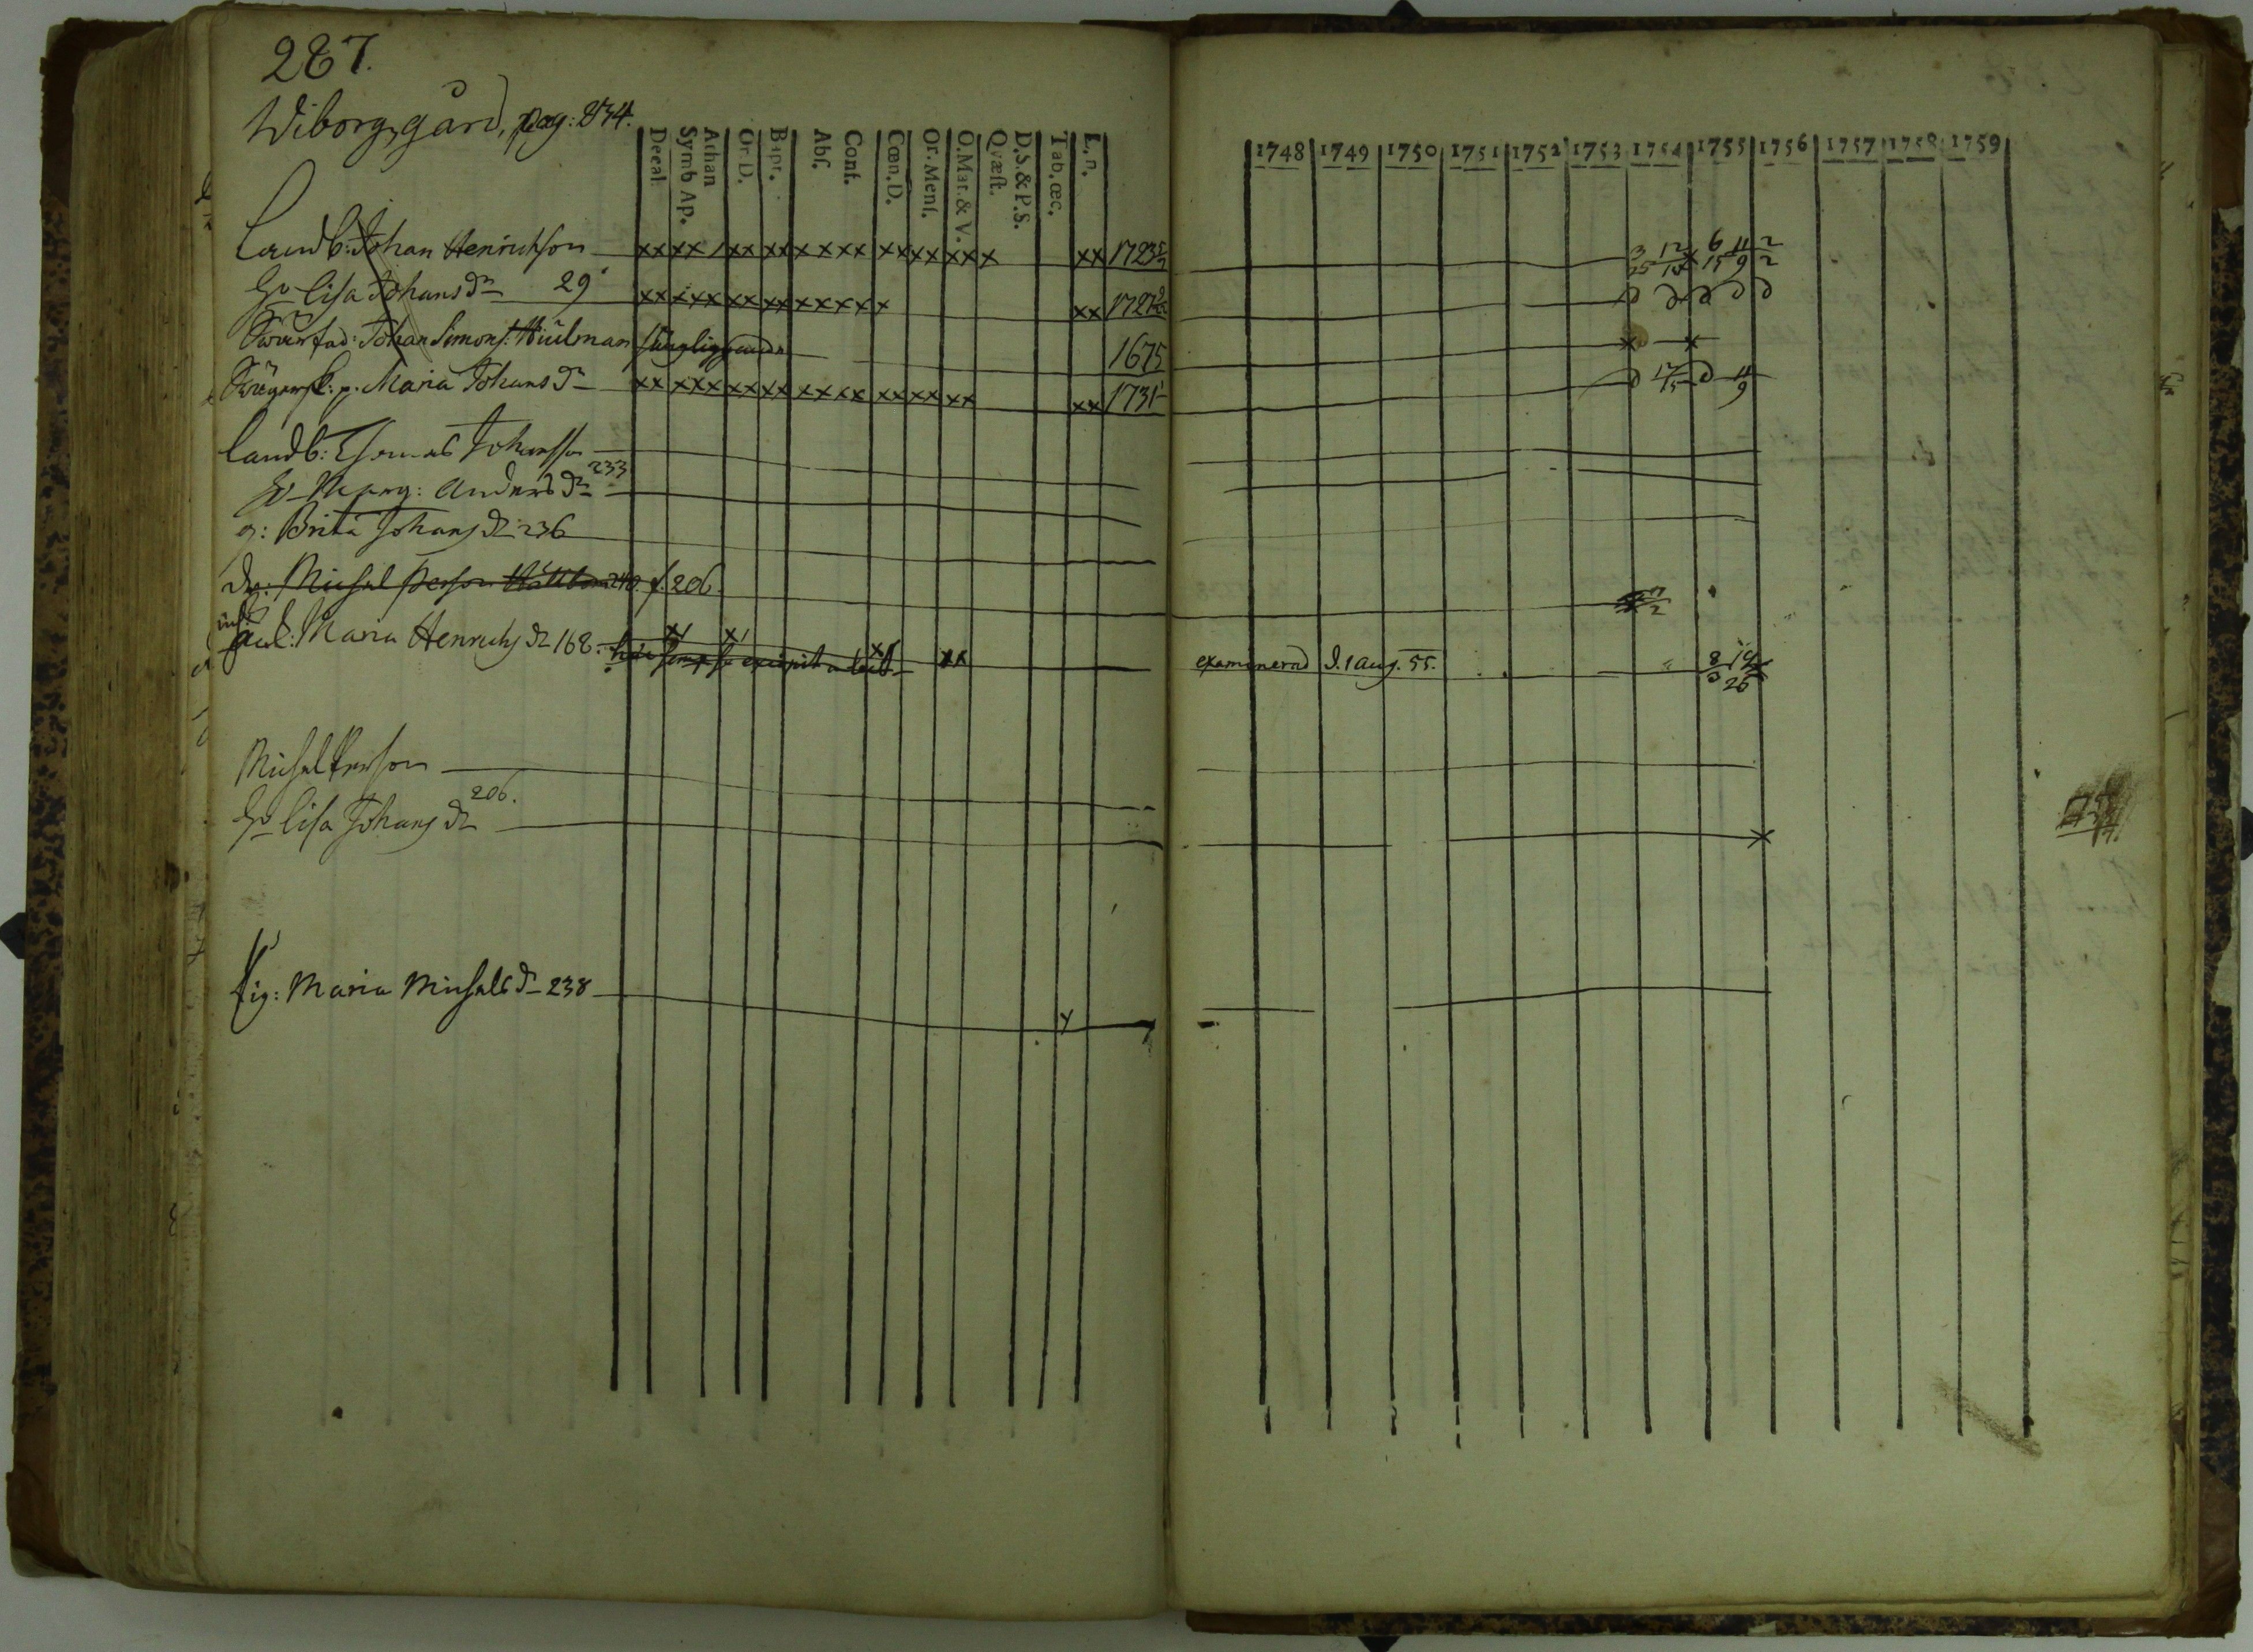 287.
Wiborgsgård, pag: 234.
Decal. Symb Ap. Athan Or. D. Bapt. Abſ. Conf. Cœn. D. Or. Menſ. O. Mat. & V. Qvæſt. D. S. & P. S. Tab. œc. L. n.
1748 1749 1750 1751 1752 1753 1754 1755 1756 1757 1758 1759
Landb: Johan Henrichson xx xx / xx xx xx xx xx xx xx x xx 1723
H. Lisa Johans dr 29 xx xxx xx xx xx xx x xx 1727
Swärfad: Johan Simons. sängliggande 1675
p. Maria Johans dr xx xxx xx xx xx xx xx xx xx xx 1731
Landb: Thomas Johansson
H. Marg: Anders dr 233
g: Brita Johans dr 236
Dr: Michel Person 240. f. 206.
inh:
Maria Henrichs dr 168. examinerad d. 1 aug. 55.
Michel Person
H. Lisa Johans dr 206.
Pig: Maria Michels dr 238